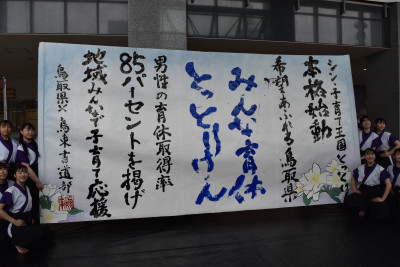 シン・子育て王国とっとり
本格始動
希望あふれる鳥取県
みんな育休
とっとりけん
男性の育休取得率
85パーセントを掲げ
地域みんなで子育て応援
鳥取県 鳥東書道部